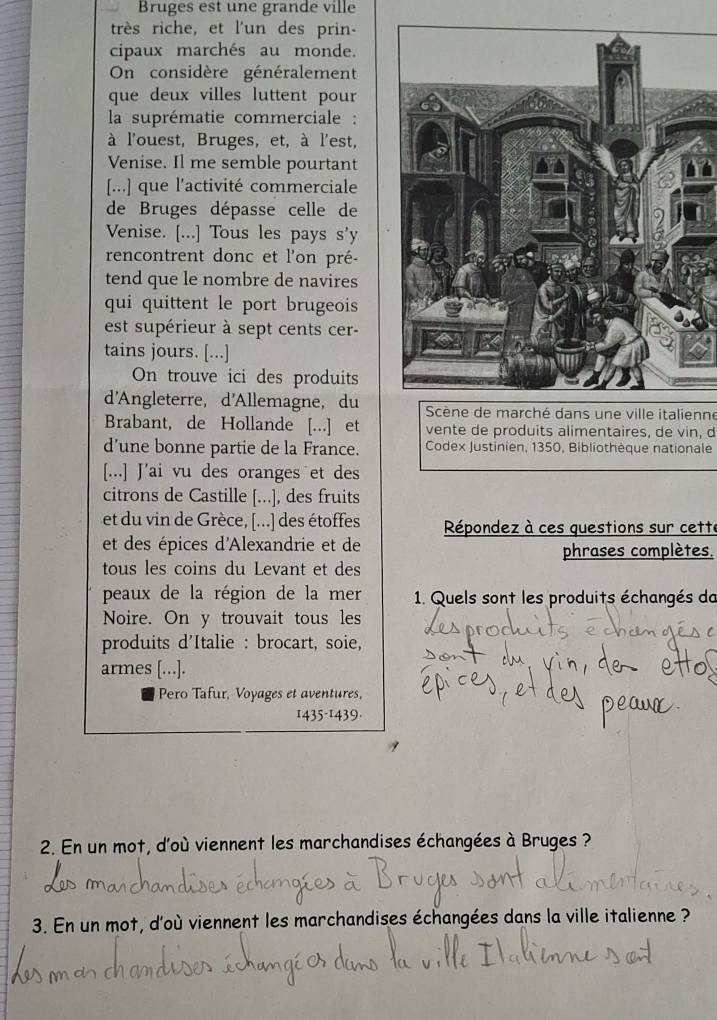 Bruges est une grande ville
très riche, et l'un des prin-
cipaux marchés au monde.
On considère généralement
que deux villes luttent pour
la suprématie commerciale :
à l'ouest, Bruges, et, à l'est,
Venise. Il me semble pourtant
[...] que l'activité commerciale
de Bruges dépasse celle de
Venise. [...] Tous les pays s'y
rencontrent donc et l'on pré-
tend que le nombre de navires
qui quittent le port brugeois
est supérieur à sept cents cer-
tains jours. [...]
On trouve ici des produits
d'Angleterre, d'Allemagne, du
Brabant, de Hollande [...] et
d'une bonne partie de la France.
[...] J'ai vu des oranges et des
citrons de Castille [...], des fruits
et du vin de Grèce, [...] des étoffes
et des épices d'Alexandrie et de
tous les coins du Levant et des
peaux de la région de la mer
Noire. On y trouvait tous les
produits d'Italie : brocart, soie,
armes [...].
Pero Tafur, Voyages et aventures,
1435-1439.
Scène de marché dans une ville italienne
vente de produits alimentaires, de vin, d
Codex Justinien, 1350, Bibliothèque nationale
Répondez à ces questions sur cette
phrases complètes.
1. Quels sont les produits échangés da
Les produits échangés c
sont du vin, des ettof
épices, et des peaux.
2. En un mot, d'où viennent les marchandises échangées à Bruges ?
Les marchandises échangées à Bruges sont alimentaires.
3. En un mot, d'où viennent les marchandises échangées dans la ville italienne ?
Les marchandises échangées dans la ville Italienne sont